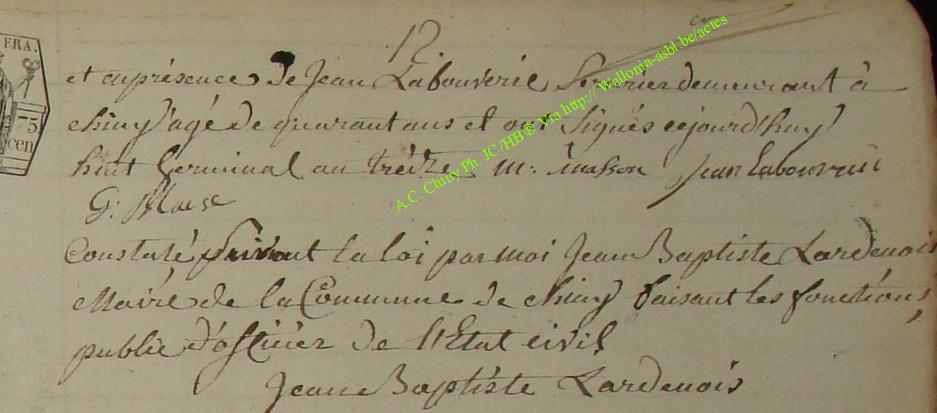 12
FRA.
75
cen
et en présence de Jean Labouverie Serrurier demeurant à
chiny agé de quarant ans et ont Signés cejourd'huy
huit Germinal an treize m: mason Jean Labouverie
G:
Constaté Suivant la loi par moi Jean Baptiste Lardenois
Maire de la Commune de chiny faisant les fonctions
public d'officier de l'Etat civil
Jean Baptiste Lardenois
A.C. Chiny Ph. JC/HB @ Via http://Wallonia-asbl.be/actes